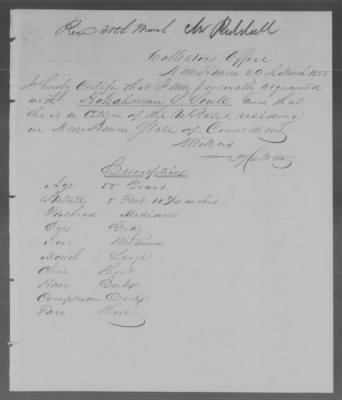 Recd 30th March Mr Riddall
Collectors Office
New Haven 29th March 1855
I hereby Certify that I am personally acquainted
with and that
he is a Citizen of the U States, residing
in New Haven, State of Connecticut
Collector
Description
Age 55 Years
Stature 5 Feet 10 1/2 inches
Forehead Medium
Eyes Gray
Nose Medium
Mouth Large
Chin Short
Hair Dark
Complexion Dark
Face Short